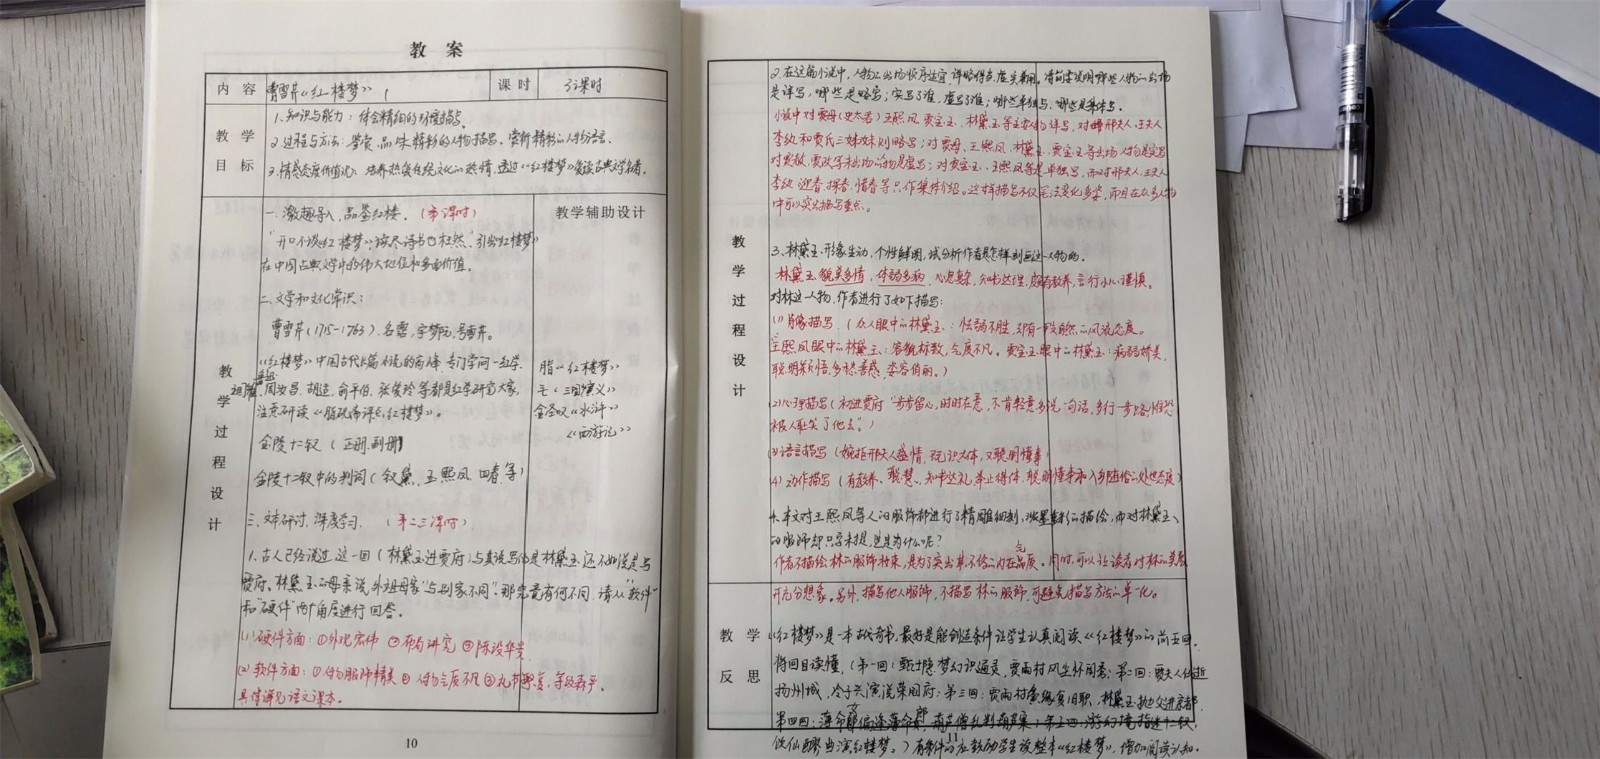 教 案
内 容 曹雪芹《红楼梦》 课 时 3课时
教 学 目 标
1.知识与能力：体会精细的环境描写。
2.过程与方法：鉴赏、品味精彩的人物描写，赏析精彩的人物语言。
3.情感态度价值观：培养热爱传统文化的热情，透过《红楼梦》爱读古典文学名著。
教 学 过 程 设 计
教学辅助设计
一.激趣导入，品鉴红楼。（第一课时）
"开口不谈红楼梦，读尽诗书也枉然"引出红楼梦
在中国古典文学中的伟大地位和多面价值。
二.文学和文化常识：
曹雪芹（1715-1763），名霑，字梦阮，号雪芹。
《红楼梦》中国古代长篇小说的高峰，专门学问—红学，
周汝昌、胡适、俞平伯、张爱玲等都是红学研究大家，
注意研读《脂砚斋评点红楼梦》。
金陵十二钗（正册、副册）
金陵十二钗中的判词（钗黛、王熙凤、四春等）
脂《红楼梦》
毛《三国演义》
金圣叹《水浒》
《西游记》
三.文本研讨，深度学习。（第二三课时）
1.古人已经说过，这一回（林黛玉进贾府）与其说写的是林黛玉，还不如说是写
贾府。林黛玉的母亲说，外祖母家"与别家不同"。那究竟有何不同，请从"软件"
和"硬件"两个角度进行回答。
（1）硬件方面：①外观宏伟 ②布局讲究 ③陈设华贵
（2）软件方面：①仆妇服饰精美 ②仆妇气质不凡 ③礼节繁复，等级森严。
具体详见语文课本。
10
教 学 过 程 设 计
2.在这篇小说中，人物的出场顺序适宜，详略得当，虚实兼用。请简要说明哪些人物的出场
是详写，哪些是略写；实写了谁，虚写了谁；哪些单独写，哪些是集体写。
小说中对贾母（史太君）王熙凤、贾宝玉、林黛玉等主要人物详写，对邢夫人、王夫人
李纨和贾氏三姊妹则略写；对贾母、王熙凤、林黛玉、贾宝玉等出场人物是实写
对贾赦、贾政等未出场的人物是虚写；对贾宝玉、王熙凤等是单独写，而对邢夫人、王夫人
李纨、迎春、探春、惜春等只作集体介绍。这样描写不仅笔法变化多姿，而且在众多人物
中可以突出描写重点。
3.林黛玉形象生动，个性鲜明，试分析作者是怎样刻画这一人物的。
林黛玉貌美多情，体弱多病，心思细，知书达理，颇有教养，言行小心谨慎。
对林这一人物，作者进行了如下描写：
（1）肖像描写。（众人眼中的林黛玉：怯弱不胜，却有一段自然的风流态度。
王熙凤眼中的林黛玉：容貌标致，气度不凡。贾宝玉眼中的林黛玉：病弱娇美，
聪明颖悟，多愁善感，姿容俏丽。）
（2）心理描写（初进贾府"步步留心，时时在意，不肯轻意多说一句话，多行一步路，惟恐
被人耻笑了他去。"）
（3）语言描写（婉拒邢夫人盛情，既识大体，又聪明懂事）
（4）动作描写（有教养、聪慧、知书达礼，举止得体，聪明懂事和入乡随俗的处世态度）
4.本文对王熙凤等人的服饰都进行了精雕细刻，浓墨重彩的描绘，而对林黛玉
的服饰却只字未提，这是为什么呢？
作者不描绘林的服饰妆束，是为了突出其不俗的内在气质。同时，可以让读者对林的美展
开充分想象。另外，描写他人服饰，不描写林的服饰，可避免描写方法的单一化。
教 学 反 思
《红楼梦》是一本古代奇书，最好是能创造条件让学生认真阅读《红楼梦》的前五回，
将回目读懂，（第一回：甄士隐梦幻识通灵，贾雨村风尘怀闺秀；第二回：贾夫人仙逝
扬州城，冷子兴演说荣国府；第三回：贾雨村夤缘复旧职，林黛玉抛父进京都
第四回：薄命女偏逢薄命郎，葫芦僧乱判葫芦案；第五回：游幻境指迷十二钗，
饮仙醪曲演红楼梦。）有条件的应鼓励学生读整本《红楼梦》，增加阅读认知。
11